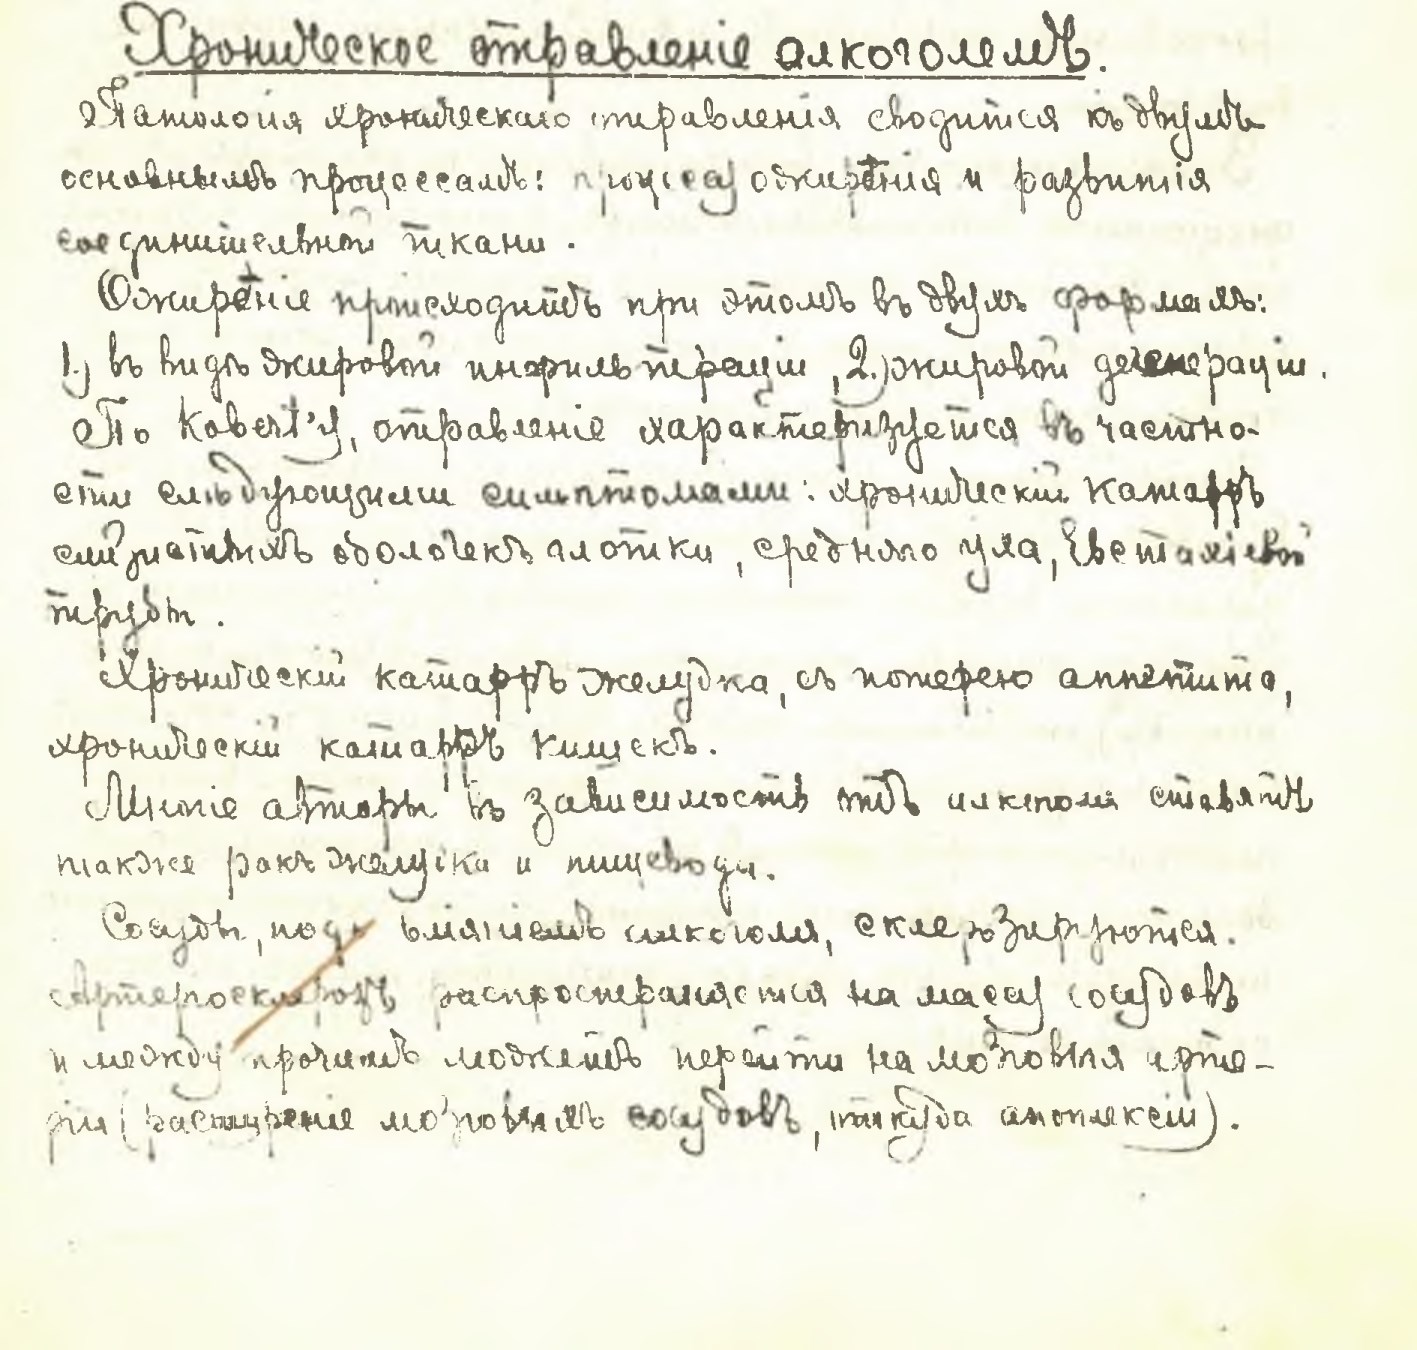 Хроническое отравленіе алкоголемъ.
Патологія хроническаго отравленія сводится къ двумъ
основнымъ процессамъ: процессу ожирѣнія и развитія
соединительной ткани.
Ожирѣніе происходитъ при этомъ въ двухъ формахъ:
1.) въ видѣ жировой инфильтраціи, 2.) жировой дегенераціи.
По Kobert'у, отравленіе характеризуется въ частно-
сти слѣдующими симптомами: хроническій катарръ
слизистыхъ оболочекъ глотки, средняго уха, Евстахіевой
трубы.
Хроническій катарръ желудка, съ потерею аппетита,
хроническій катарръ кишекъ.
Многіе авторы въ зависимость отъ алкоголя ставятъ
также ракъ желудка и пищевода.
Сосуды, подъ вліяніемъ алкоголя, склерозируются.
Артеріосклерозъ распространяется на массу сосудовъ
и между прочимъ можетъ перейти на мозговыя арте-
ріи (расширеніе мозговыхъ сосудовъ, откуда апоплексіи).